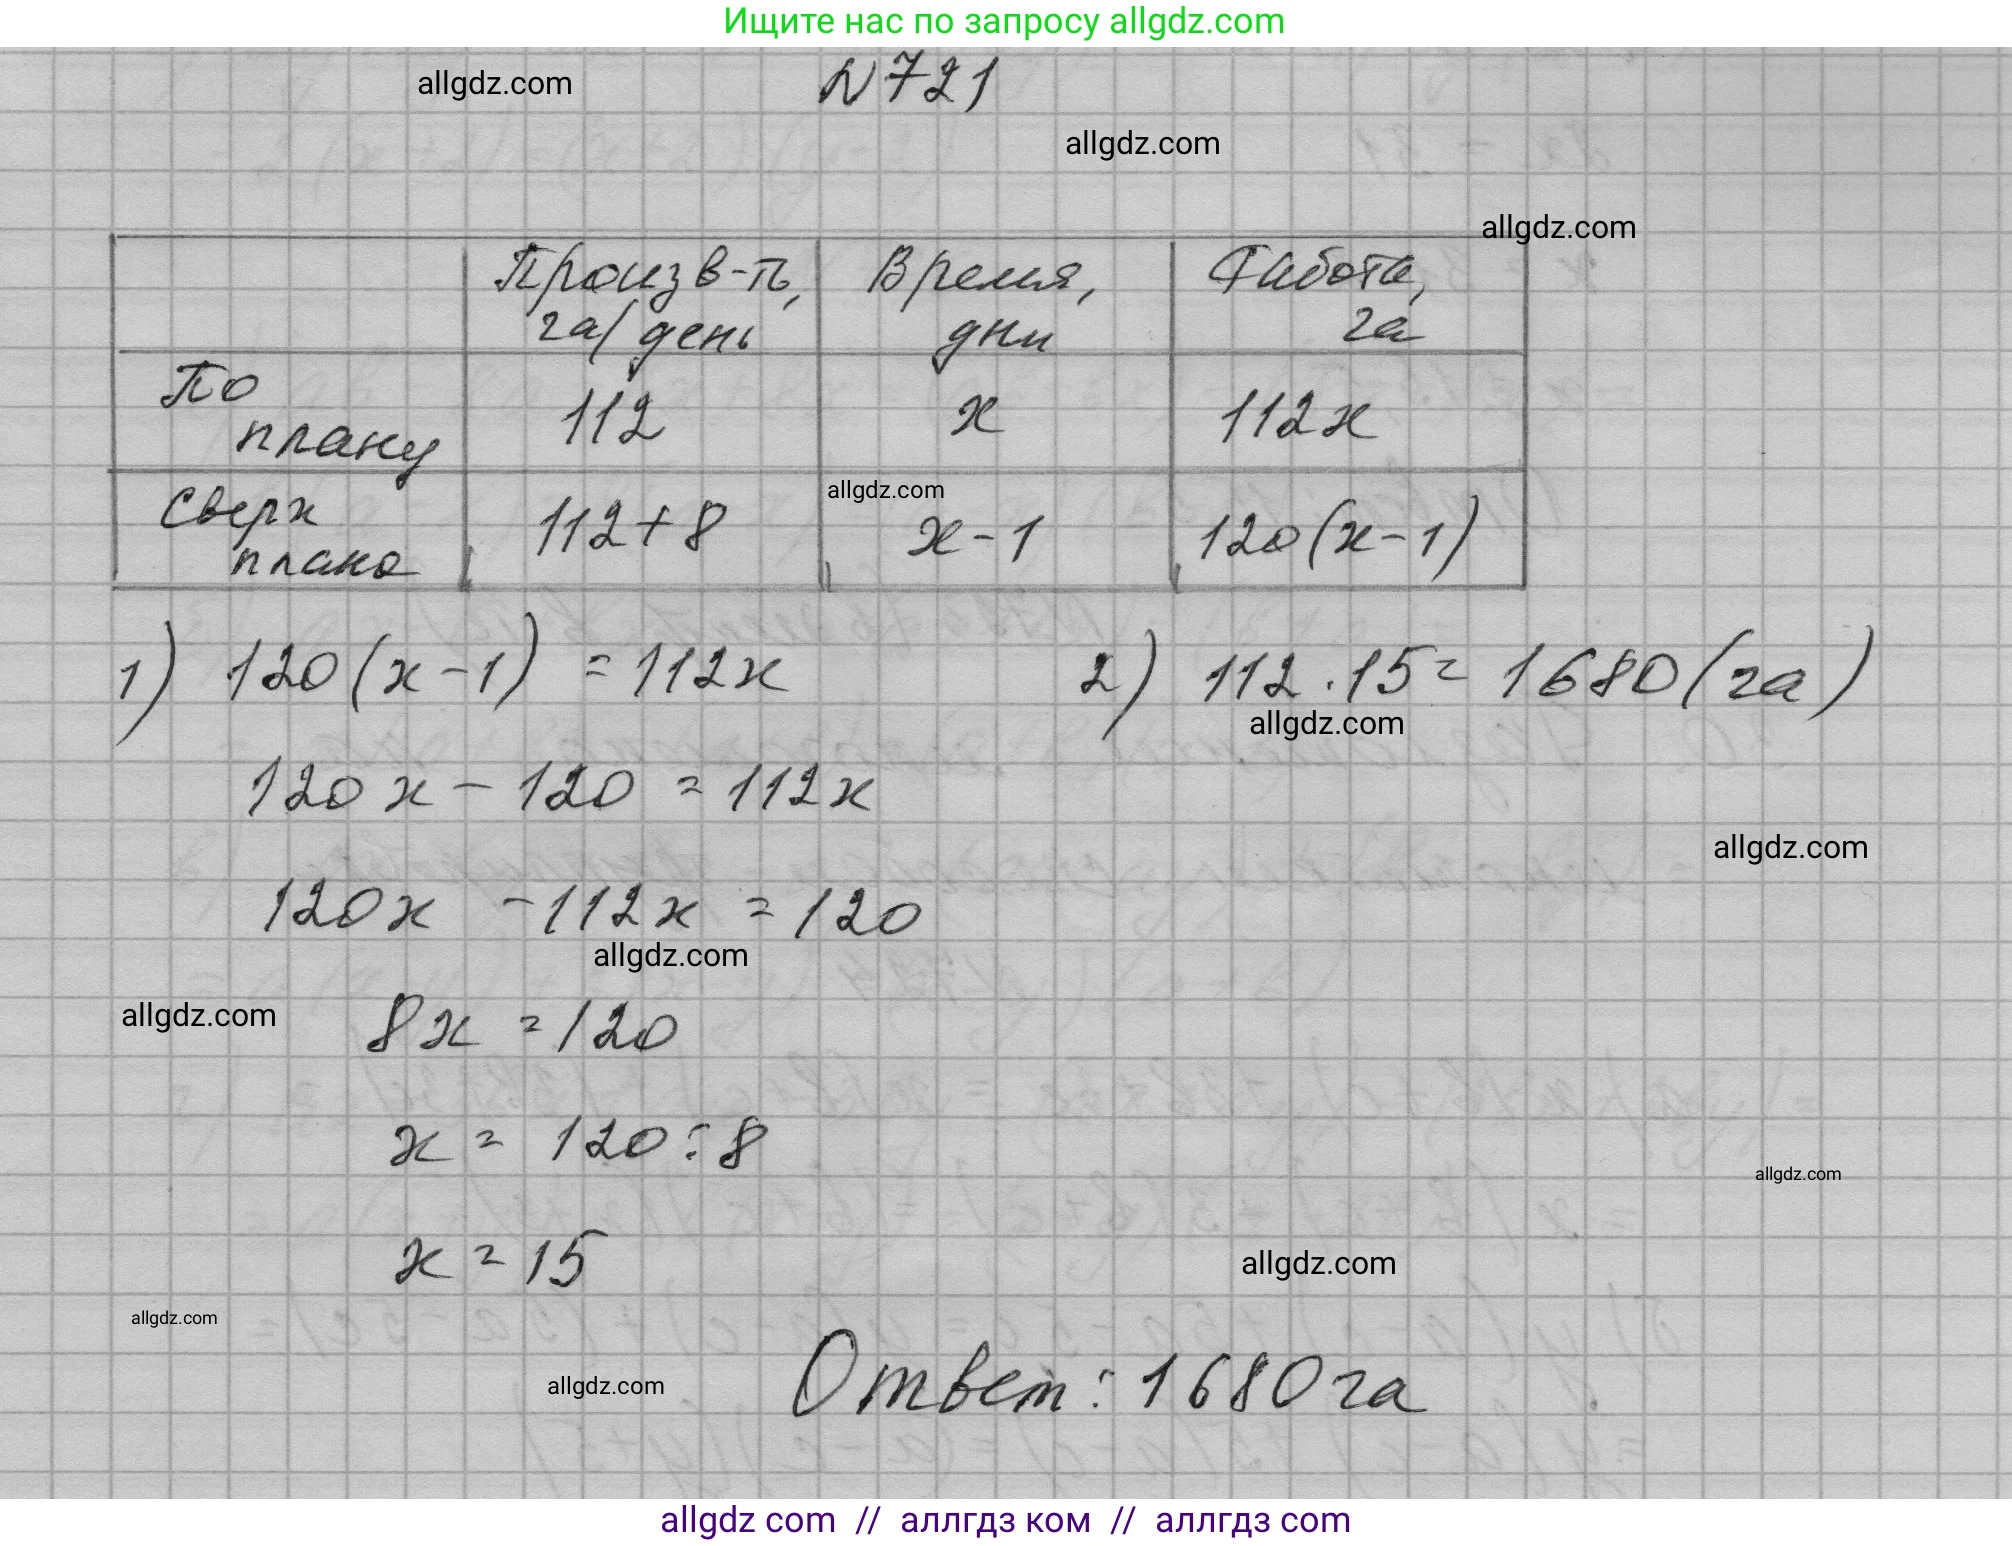 Ищите нас по запросу allgdz.com
allgdz.com
N721
allgdz.com
allgdz.com
Произв-ть, Время, Работа,
га/день дни га
По плану 112 x 112x
allgdz.com
Сверх плана 112+8 x-1 120(x-1)
1) 120(x-1) = 112x 2) 112·15=1680(га)
allgdz.com
120x-120=112x
allgdz.com
120x-112x=120
allgdz.com
allgdz.com
8x=120
x=120:8
allgdz.com
x=15
allgdz.com
allgdz.com
allgdz.com
Ответ: 1680га
allgdz com // аллгдз ком // аллгдз com